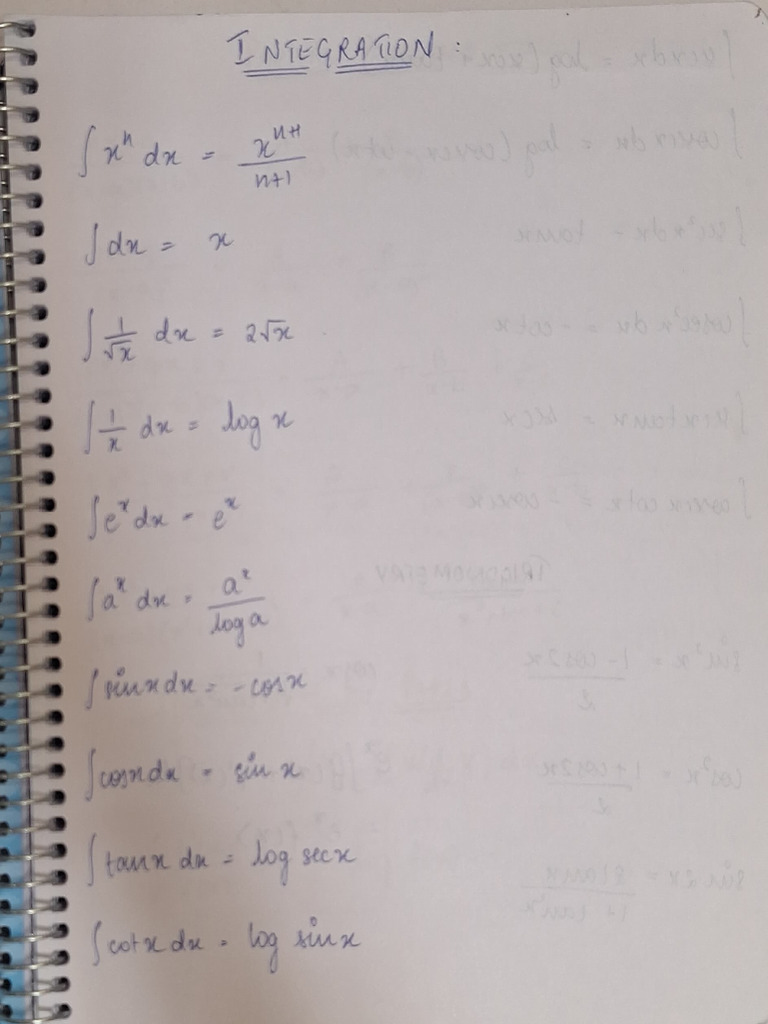 INTEGRATION:
∫ xⁿ dx = xⁿ⁺¹ / n+1
∫ dx = x
∫ 1/√x dx = 2√x
∫ 1/x dx = log x
∫ eˣ dx = eˣ
∫ aˣ dx = aˣ / log a
∫ sinx dx = -cosx
∫ cosx dx = sin x
∫ tanx dx = log secx
∫ cotx dx = log sinx